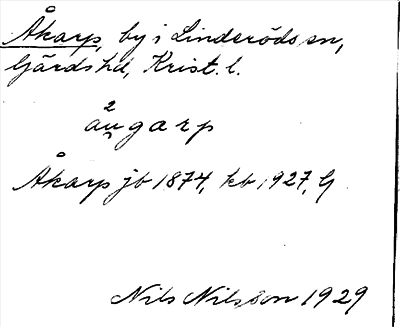 Åkarp, by i Linderöds sn,
Gärds hd, Krist. l.
2
aṷgarp
Åkarp jb 1874, kb 1927, G
Nils Nilsson 1929